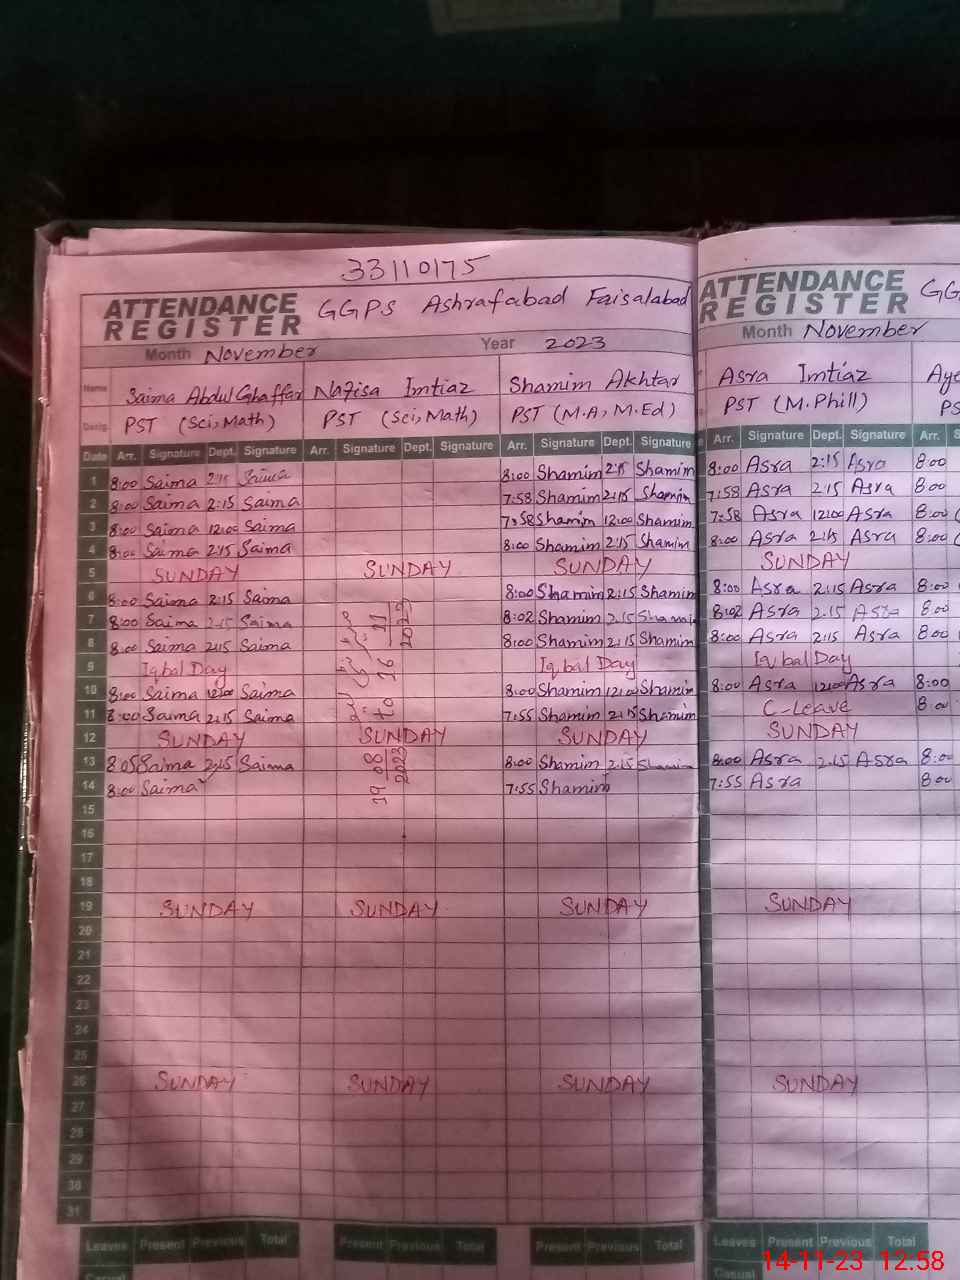 33110175
ATTENDANCE REGISTER GGPS Ashrafabad Faisalabad
Month November Year 2023
Name Saima Abdul Ghaffar Nafisa Imtiaz Shamim Akhtar
Desig. PST (Sci, Math) PST (Sci, Math) PST (M.A, M.Ed)
Date Arr. Signature Dept. Signature Arr. Signature Dept. Signature Arr. Signature Dept. Signature
1 8:00 Saima 2:15 Saima 8:00 Shamim 2:15 Shamim
2 8:00 Saima 2:15 Saima 7:58 Shamim 2:15 Shamim
3 8:00 Saima 12:00 Saima 7:58 Shamim 12:00 Shamim
4 8:00 Saima 2:15 Saima 8:00 Shamim 2:15 Shamim
5 SUNDAY SUNDAY SUNDAY
6 8:00 Saima 2:15 Saima 8:00 Shamim 2:15 Shamim
7 8:00 Saima 2:15 Saima 8:02 Shamim 2:15 Shamim
8 8:00 Saima 2:15 Saima 8:00 Shamim 2:15 Shamim
9 Iqbal Day Iqbal Day
10 8:00 Saima 12:00 Saima 8:00 Shamim 12:00 Shamim
11 8:00 Saima 2:15 Saima 7:55 Shamim 2:15 Shamim
12 SUNDAY SUNDAY SUNDAY
13 8:05 Saima 2:15 Saima 8:00 Shamim 2:15 Shamim
14 8:00 Saima 7:55 Shamim
15
16
17
18
19 SUNDAY SUNDAY SUNDAY
20
21
22
23
24
25
26 SUNDAY SUNDAY SUNDAY
27
28
29
30
31
Leaves Present Previous Total Present Previous Total Present Previous Total
Casual
19 08 2023 to 16 11 2023
ATTENDANCE REGISTER GG
Month November
Asra Imtiaz Aye
PST (M.Phill) PS
Arr. Signature Dept. Signature Arr. S
8:00 Asra 2:15 Asra 8:00
7:58 Asra 2:15 Asra 8:00
7:58 Asra 12:00 Asra 8:00
8:00 Asra 2:15 Asra 8:00
SUNDAY
8:00 Asra 2:15 Asra 8:00
8:02 Asra 2:15 Asra 8:00
8:00 Asra 2:15 Asra 8:00
Iqbal Day
8:00 Asra 12:00 Asra 8:00
C-Leave 8:00
SUNDAY
8:00 Asra 2:15 Asra 8:00
7:55 Asra 8:00
SUNDAY
SUNDAY
Leaves Present Previous Total
Casual
14-11-23 12.58